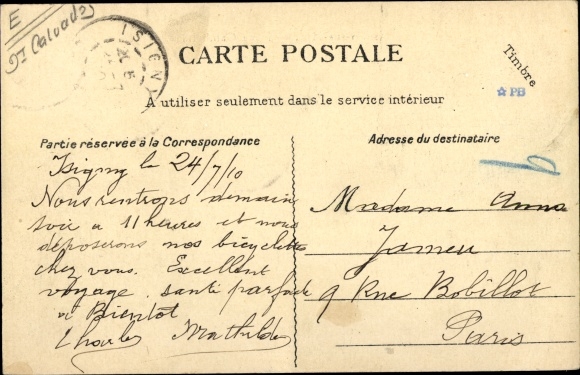 E
Dt Calvados
ISIGNY
CARTE POSTALE
Timbre
A utiliser seulement dans le service intérieur
PB
Partie réservée à la Correspondance
Isigny le 24/7/10
Nous rentrons demain
soir a 11 heures et nous
déposerons nos bicyclettes
chez vous. Excellent
voyage. santé parfaite
a Bientot
Charles Mathilde
Adresse du destinataire
Madame Anna
9 Rue Bobillot
Paris